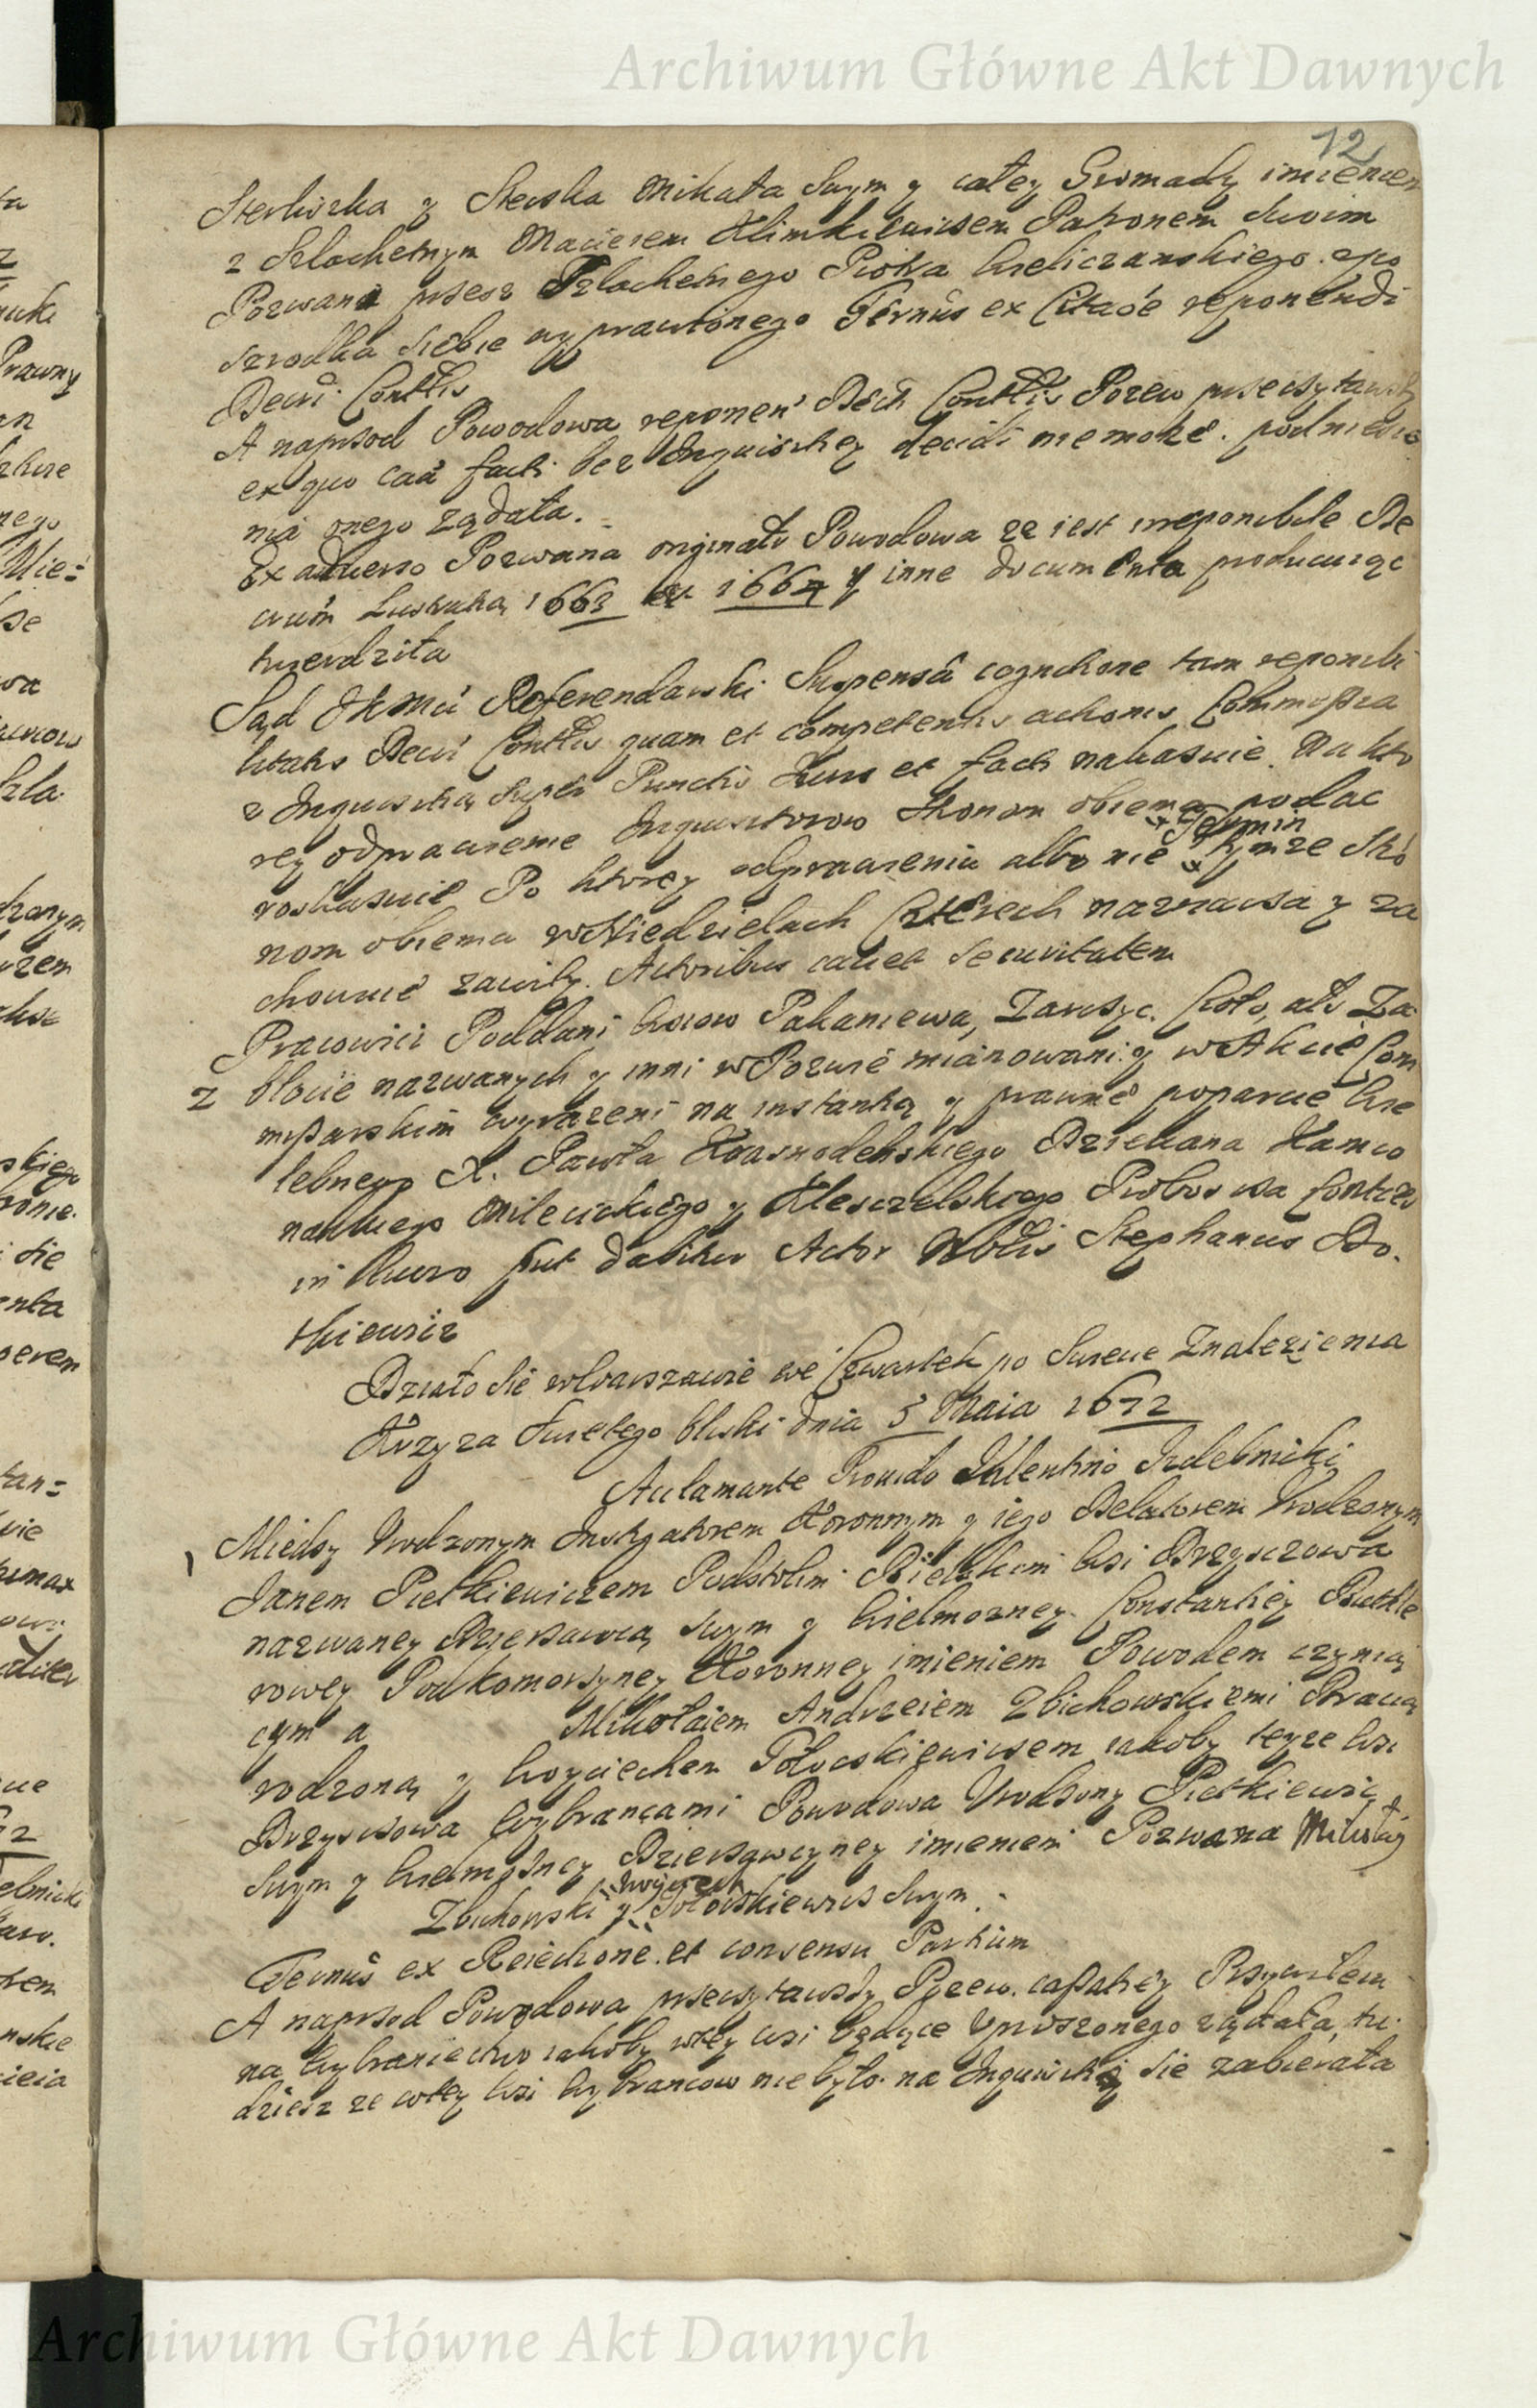 Archiwum Główne Akt Dawnych
12
Sterliczka y Steczka Mikata Swym y całey Gromady imieniem
z Szlachetnym Macieiem Klimkiewiczem Patronem Swoim
Pozwana przesz Szlachetnego Piotra Wieliczanskiego. ego
szrodka siebie wyprawionego Ternûs ex Citaõe reponendi
Decri Conttis
A naprzod Powodowa reponeñ Decti Conttis Pozew przeczytawszy
ex quo caã facti bez Inquisitiey decidi niemoze. podniesie
nia onego ządała.
Ex adverso Pozwana originału Powodowa ze iest irreponibile De
crum Lustratią 1663 et 1664 y inne documenta producuiąc
twierdziła
Sąd JKMci Referendarski Suspensâ cognitione tam reponibi
litatis Decri Conttis quam et competentis actionis Commissia
z Inquisitią super Punctis Iuris et facti nakazuie. Na kto
rey odprawienie Inquisitorow Stronom obiema podac
roskazuie Po ktorey odprawieniu albo nie Tymze Stro
Termin
nom obiema w Niedzielach Czterech nazracza y za
chowuie zawity. Actoribus cavet Securitatem
Pracowici Poddani Wsiow Pakaniewa, Zarczyc. Koło, als Za
2 błocie nazwanych y inni w Pozwie mianowani y w Akcie Com
missarskim wyrazeni na instantią y prawne poparcie Wie
lebnego X. Pawła Krasnodebskiego Dziekana Kamio
nalnego Mileickiego y Klesczelskiego Proboscza Controv
in Iuris put Dabitur Actor Nobilis Stephanus Do.
tkiewicz
Działo Sie w Warszawie we Czwartek po Swiecie Znalezienia
Krzyza Swietego bliski dnia 5 Maia 1672
Acclamante Provido Valentino Izdebnicki
1 Miedzy Urodzonym Instygatorem Koronnym y iego Delatorem Urodzonym
Janem Pietkiewiczem Podstolim Bielskim Wsi Brzysczowa
nazwaney Dzierzawcą swym y Wielmozney Constantiey Buttle
rowey Podkomorzyney Koronney imieniem Powodem czynią
cym a Mikołaiem Andrzeiem Zbichowskiemi Bracią
rodzoną y Woyciechem Połoskiewiczem iakoby teyze Wsi
Brzysczowa Wybrancami Powodowa Urodzony Pietkiewicz
Swym y Wielmozney Dzierzawczyney imieniem Pozwana Mikołay
Zbichowski y Połoskiewicz Swym.
Woyciech
Ternûs ex Reiectione et consensu Partium
A naprzod Powodowa przeczytawszy Pozew. cassatiey Przywileiu
na Wybraniectwo iakoby w tey wsi będące Uproszonego ządała, tu
dziesz ze w tey Wsi Wybrancow nie było na Inquisitią sie zabierała
Archiwum Główne Akt Dawnych